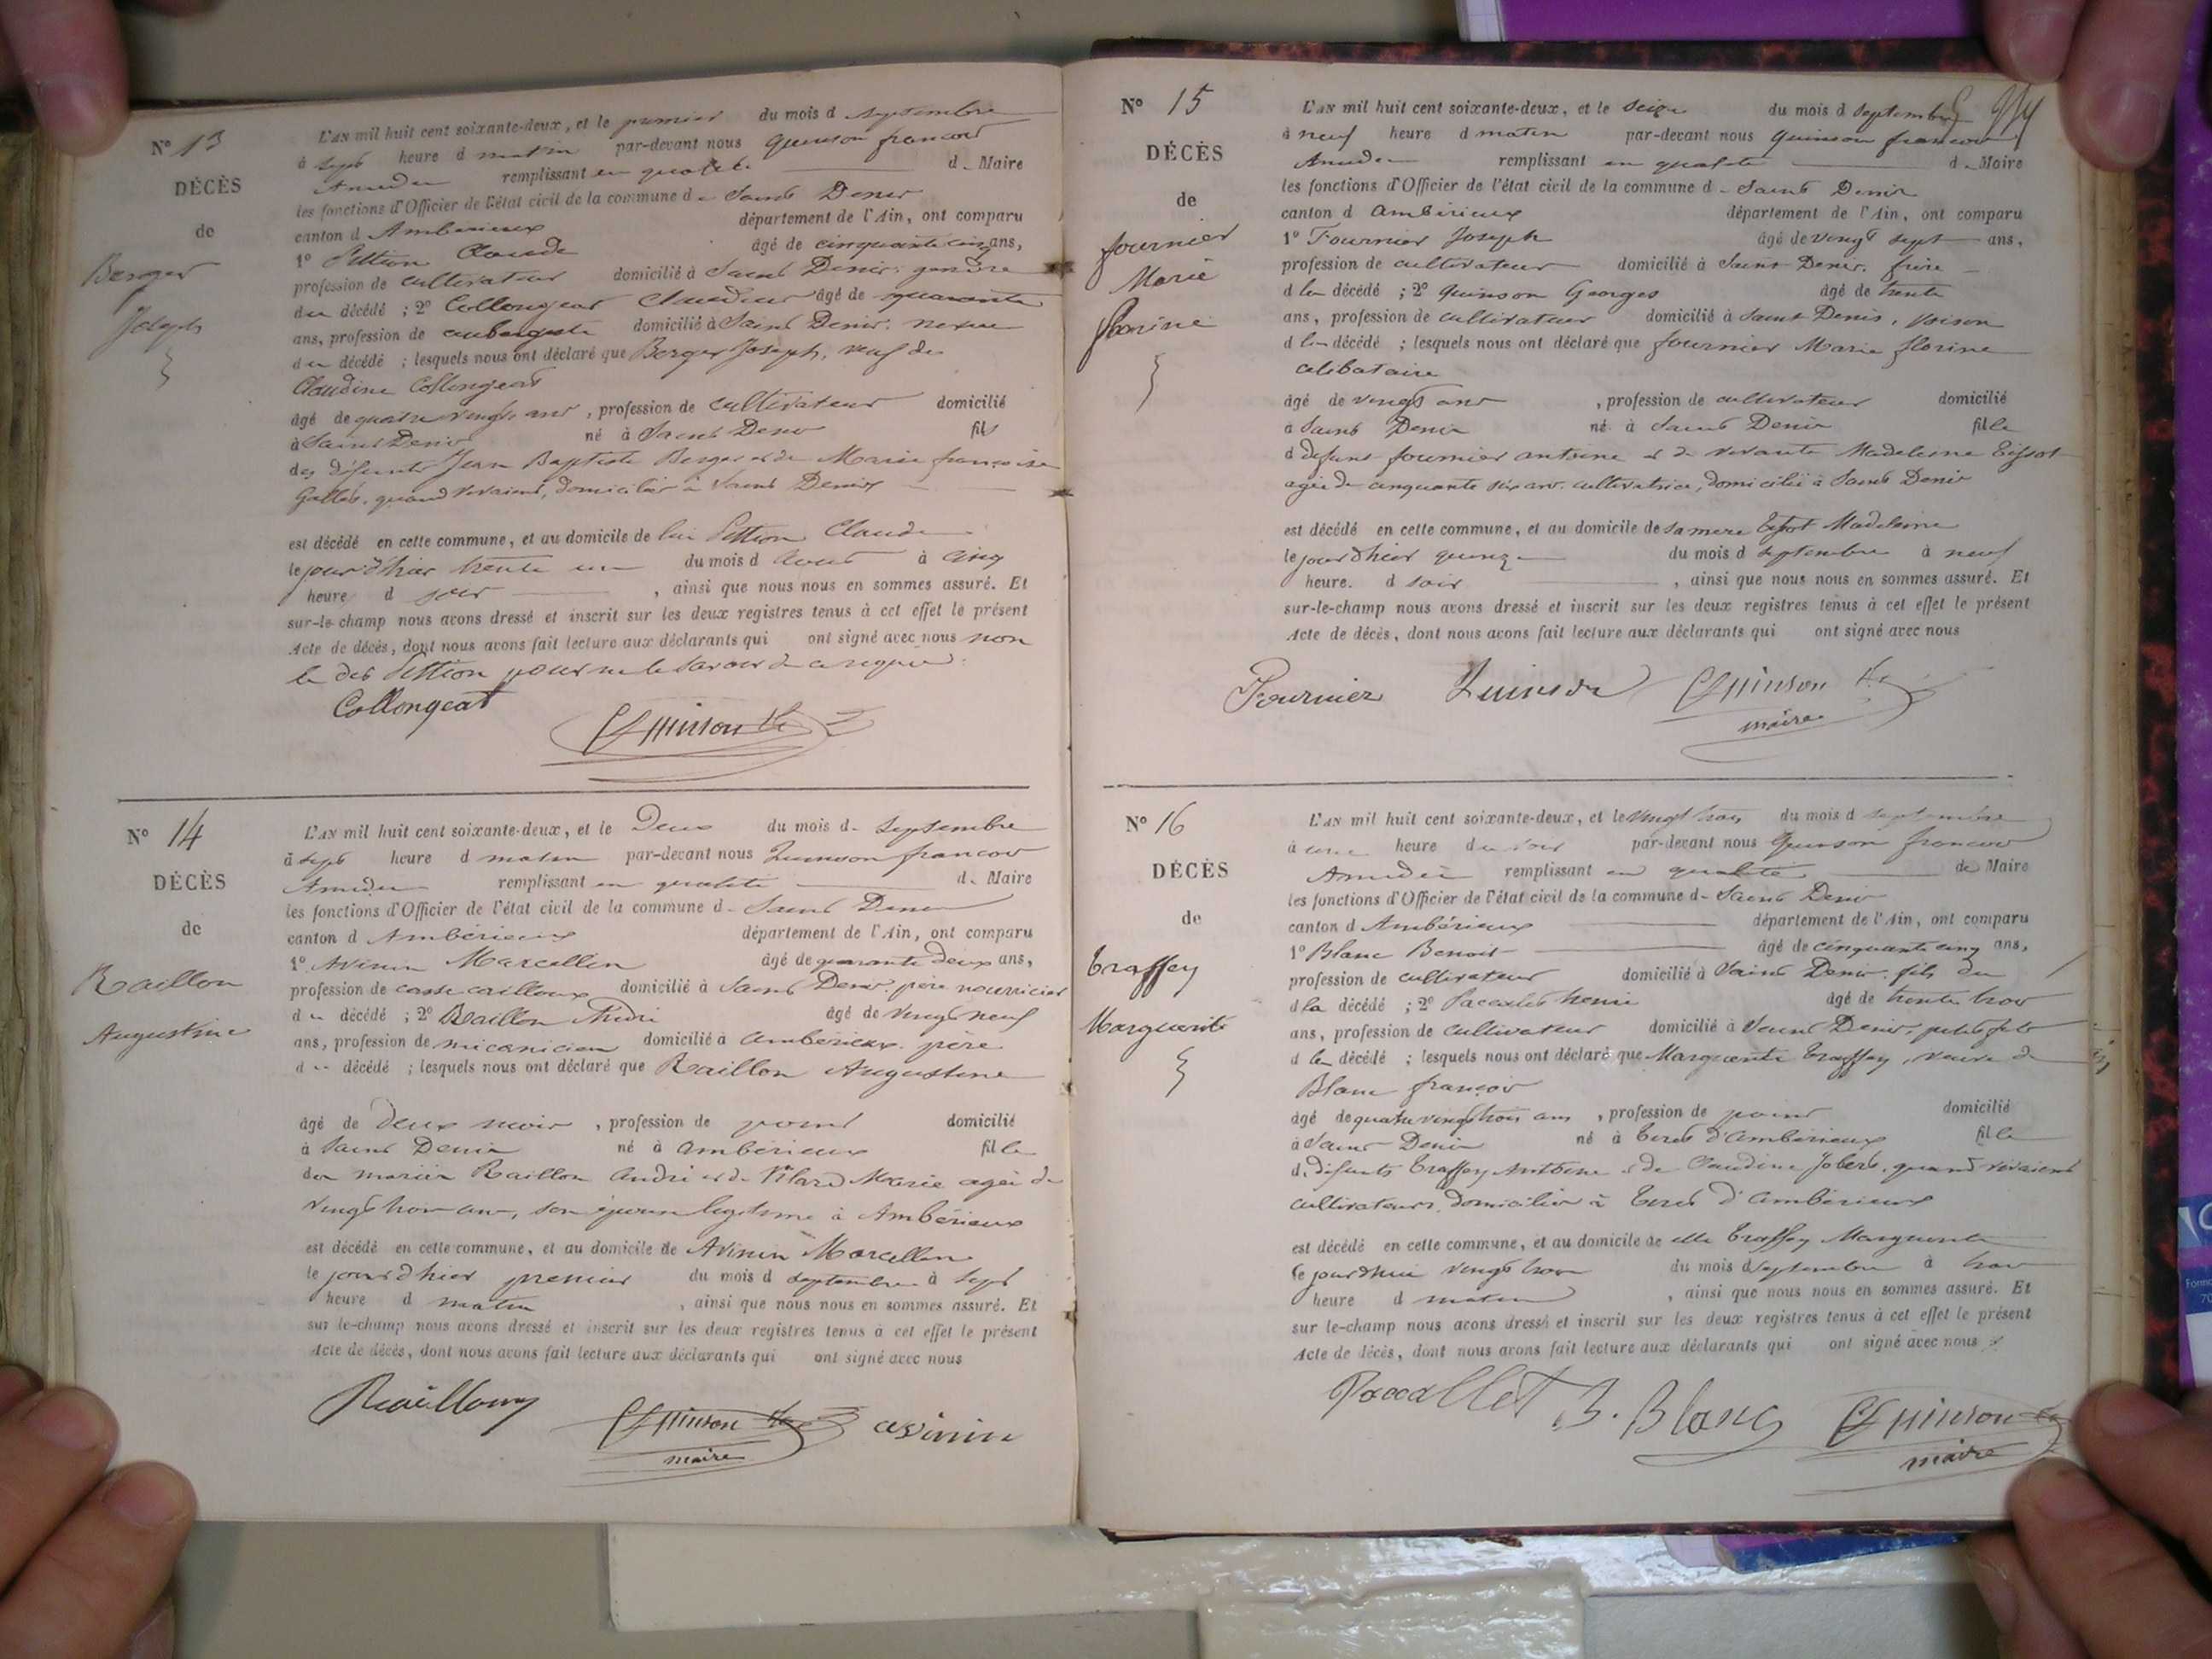 N° 13
DÉCÈS
de
Berger
Joseph
L'AN mil huit cent soixante-deux, et le premier du mois d septembre
à sept heure d matin par-devant nous Quinson francois
Amédée remplissant en qualité d. Maire
les fonctions d'Officier de l'état civil de la commune de Saint Denis
canton d Ambérieux département de l'Ain, ont comparu
1° Claude âgé de cinquante cinq ans,
profession de cultivateur domicilié à Saint Denis, gendre
du décédé ; 2° Collongeat Claudius âgé de quarante
ans, profession de aubergiste domicilié à Saint Denis, neveu
du décédé ; lesquels nous ont déclaré que Berger Joseph, veuf de
Claudine Collongeat
âgé de quatre vingts ans, profession de cultivateur domicilié
à Saint Denis né à Saint Denis fils
des défunts Jean Baptiste Berger et de Marie françoise
quand vivaient, domiciliés à Saint Denis
est décédé en cette commune, et au domicile de lui Claude
le jour d'hier trente un du mois d Aout à cinq
heure d soir, ainsi que nous nous en sommes assuré. Et
sur-le-champ nous avons dressé et inscrit sur les deux registres tenus à cet effet le présent
Acte de décès, dont nous avons fait lecture aux déclarants qui ont signé avec nous non
le dit pour ne le savoir de ce requis.
Collongeat
Quinson maire
N° 14
DÉCÈS
de
Raillon
Augustine
L'AN mil huit cent soixante-deux, et le Deux du mois d. Septembre
à sept heure d matin par-devant nous Quinson francois
Amédée remplissant en qualité d. Maire
les fonctions d'Officier de l'état civil de la commune d. Saint Denis
canton d Ambérieux département de l'Ain, ont comparu
1° Avinin Marcellin âgé de quarante deux ans,
profession de casse cailloux domicilié à Saint Denis, père nourricier
du décédé ; 2° Raillon André âgé de vingt neuf
ans, profession de mécanicien domicilié à Ambérieux, père
d décédé ; lesquels nous ont déclaré que Raillon Augustine
âgé de deux mois, profession de point domicilié
à Saint Denis né à Ambérieux fille
des mariés Raillon André et de Vilard Marie agée de
vingt trois ans, son épouse légitime à Ambérieux
est décédé en cette commune, et au domicile de Avinin Marcellin
le jour d'hier premier du mois d septembre à sept
heure d matin, ainsi que nous nous en sommes assuré. Et
sur le-champ nous avons dressé et inscrit sur les deux registres tenus à cet effet le présent
Acte de décès, dont nous avons fait lecture aux déclarants qui ont signé avec nous
Raillon Quinson avinin
maire
N° 15
DÉCÈS
de
fournier
Marie
florine
L'AN mil huit cent soixante-deux, et le seize du mois d septembre
à neuf heure d matin par-devant nous Quinson francois
Amédée remplissant en qualité d. Maire
les fonctions d'Officier de l'état civil de la commune d. Saint Denis
canton d Ambérieux département de l'Ain, ont comparu
1° Fournier Joseph âgé de vingt sept ans,
profession de cultivateur domicilié à Saint Denis, frère
d la décédé ; 2° Quinson Georges âgé de trente
ans, profession de cultivateur domicilié à Saint Denis, voison
d la décédé ; lesquels nous ont déclaré que fournier Marie florine
célibataire
âgé de vingt ans, profession de cultivateur domicilié
à Saint Denis né à Saint Denis fille
d défunt fournier antoine et de vivante Madeleine
agée de cinquante six ans, cultivatrice, domicilié à Saint Denis
est décédé en cette commune, et au domicile de sa mère Madeleine
le jour d'hier quinze du mois d septembre à neuf
heure. d soir, ainsi que nous nous en sommes assuré. Et
sur-le-champ nous avons dressé et inscrit sur les deux registres tenus à cet effet le présent
Acte de décès, dont nous avons fait lecture aux déclarants qui ont signé avec nous
Fournier Quinson Quinson
maire
N° 16
DÉCÈS
de
Traffey
Marguerite
L'AN mil huit cent soixante-deux, et le vingt trois du mois d septembre
à une heure du soir par-devant nous Quinson francois
Amédée remplissant en qualité de Maire
les fonctions d'Officier de l'état civil de la commune d. Saint Denis
canton d Ambérieux département de l'Ain, ont comparu
1° Blanc Benoit âgé de cinquante cinq ans,
profession de cultivateur domicilié à Saint Denis, fils du
d la décédé ; 2° âgé de trente trois
ans, profession de cultivateur domicilié à Saint Denis, petit fils
d la décédé ; lesquels nous ont déclaré que Marguerite Traffey, veuve de
Blanc françois
âgé de quatre vingt trois ans, profession de point domicilié
à Saint Denis né à d'Ambérieux fille
d. défunts Traffey Antoine et de Claudine quand vivaient
cultivateurs, domiciliés à d'Ambérieux
est décédé en cette commune, et au domicile de elle Traffey Marguerite
le jourdhui vingt trois du mois d septembre à trois
heure d matin, ainsi que nous nous en sommes assuré. Et
sur le-champ nous avons dressé et inscrit sur les deux registres tenus à cet effet le présent
Acte de décès, dont nous avons fait lecture aux déclarants qui ont signé avec nous
B. Blanc Quinson
maire